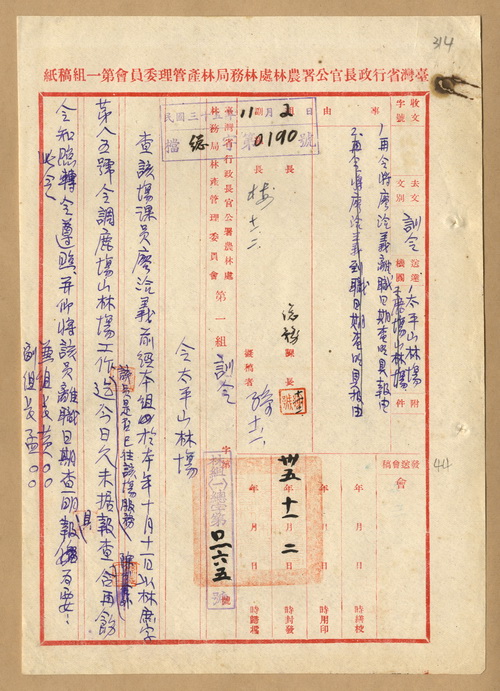 314
臺灣省行政長官公署農林處林務局林產管理委員會第一組稿紙
收文
字號
去文
文別
訓令
送達
機關
太平山林場
鹿場山林場
附
件
事由
1.再令將廖洽義離職日期查明具報由
2.再令將廖洽義到職日期查明具報由
民國三十五年11月2日
檔 字第0190號
組長
課長
擬稿者
臺灣省行政長官公署農林處
林務局林產管理委員會
第一組
訓令
字第
號
卅五 十一 二
林組(一)總字第0二六五號
年 月 日 時繕校
年 月 日 時用印
年 月 日 時封發
年 月 日 時歸檔
發送會稿
會
44
令太平山林場
查該場課員廖洽義前經本組於本年十月十一日以林產字
第八五號令調鹿場山林場工作迄今日久未據報查合再飭
該員是否已往該場服務
令知臨轉令遵照并仰將該員離職日期查明具報為要
此令
兼組長黃○○
副組長孟○○